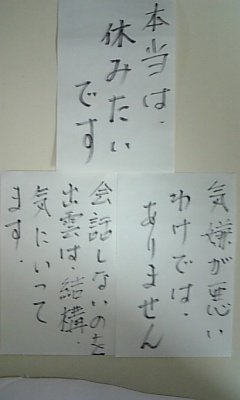 本当は、
休みたい
です
気嫌が悪い
わけでは、
ありません
会話しないのを
出雲は、結構、
気にいって
ます。